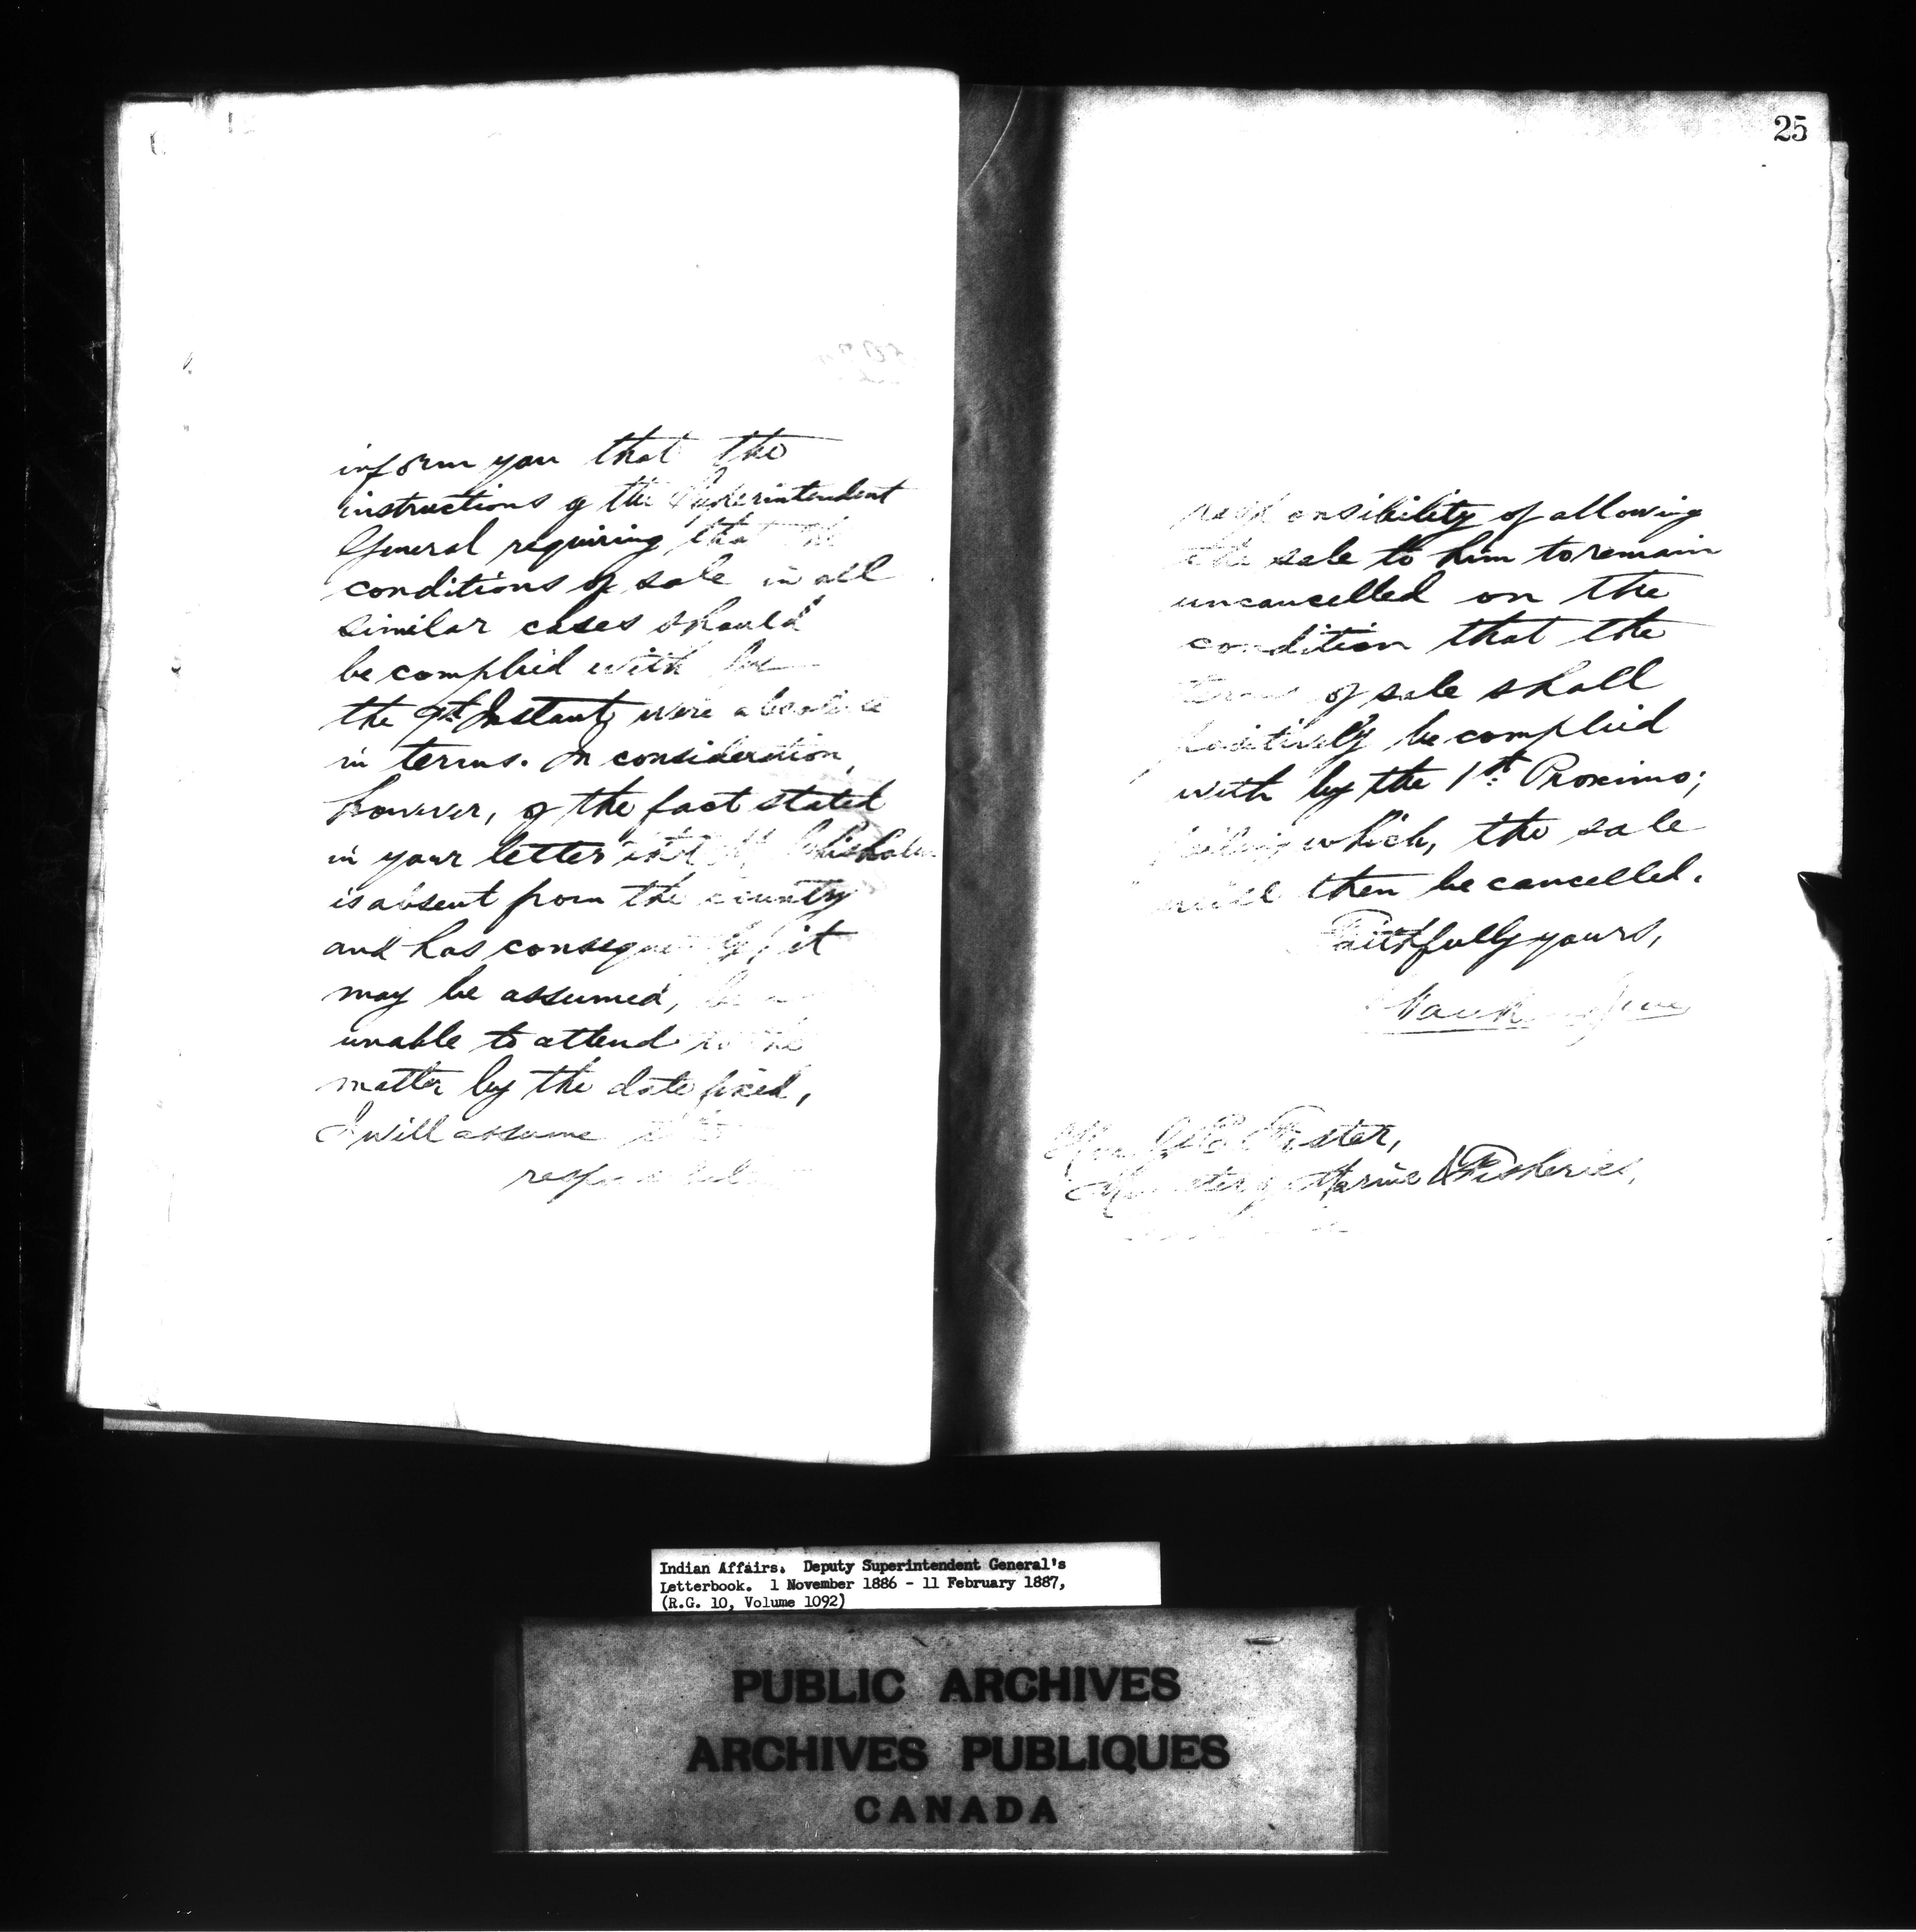 inform you that the
instructions of the Superintendent
General requiring that the
conditions of sale in all
similar cases should
be complied with by
the 9th Instant, were absolute
in terms. In consideration,
however, of the fact stated
in your letter that
is absent from the country
and has consequently, it
may be assumed,
unable to attend to the
matter by the date fixed,
I will assume the
responsibility
25
responsibility of allowing
the sale to him to remain
uncancelled on the
condition that the
terms of sale shall
positively be complied
with by the 1st Proximo;
failing which, the sale
will then be cancelled.
Faithfully yours,
Hon Foster,
Minister of Marine & Fisheries,
Indian Affairs. Deputy Superintendent General's
Letterbook. 1 November 1886 - 11 February 1887,
(R.G. 10, Volume 1092)
PUBLIC ARCHIVES
ARCHIVES PUBLIQUES
CANADA